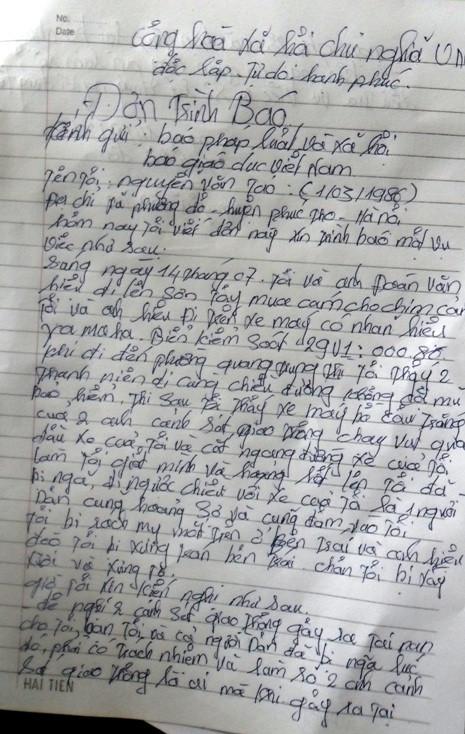 No.
Date
Cộng hoà xã hội chủ nghĩa VN
độc lập. Tự do. hạnh phúc.
Đơn Trình Báo
kính gửi: báo pháp luật và xã hội
báo giáo dục việt Nam
Tên tôi: nguyễn văn Tao: (1/03/1986)
Địa chỉ xã phương độ - huyện phúc thọ - Hà nội
hôm nay tôi viết đơn này xin trình báo một vụ
việc như sau:
Sáng ngày 14 tháng 07. tôi và anh Đoàn văn
hiếu đi lên Sơn Tây mua cám cho chim
Tôi và anh hiếu đi xe máy có nhãn hiệu
yamaha. Biển kiểm soát 29V1: 000.80
khi đi đến phường quang trung thì tôi thấy 2
thanh niên đi cùng chiều đường không đội mũ
bảo hiểm, thì sau tôi thấy xe máy
của 2 anh cảnh sát giao thông chạy vụt qua
đầu xe của tôi và cắt ngang đường xe của tôi
làm tôi giật mình và hoảng hốt lên tôi đã
bị ngã, đi ngược chiều với xe của tôi là 1 người
Dân cũng hoảng sợ và cũng đâm vào tôi
Tôi bị rách my mắt trên ở bên trái và anh hiếu
tôi bị bên trái chân tôi bị
giờ tôi xin kiến nghị như sau.
- đề nghị 2 cảnh sát giao thông gây ra tai nạn
cho tôi, bạn tôi, và cả người Dân đã bị ngã lúc
đó, phải có trách nhiệm và làm rõ 2 anh cảnh
sát giao thông là ai mà khi gây ra tai
HAI TIEN